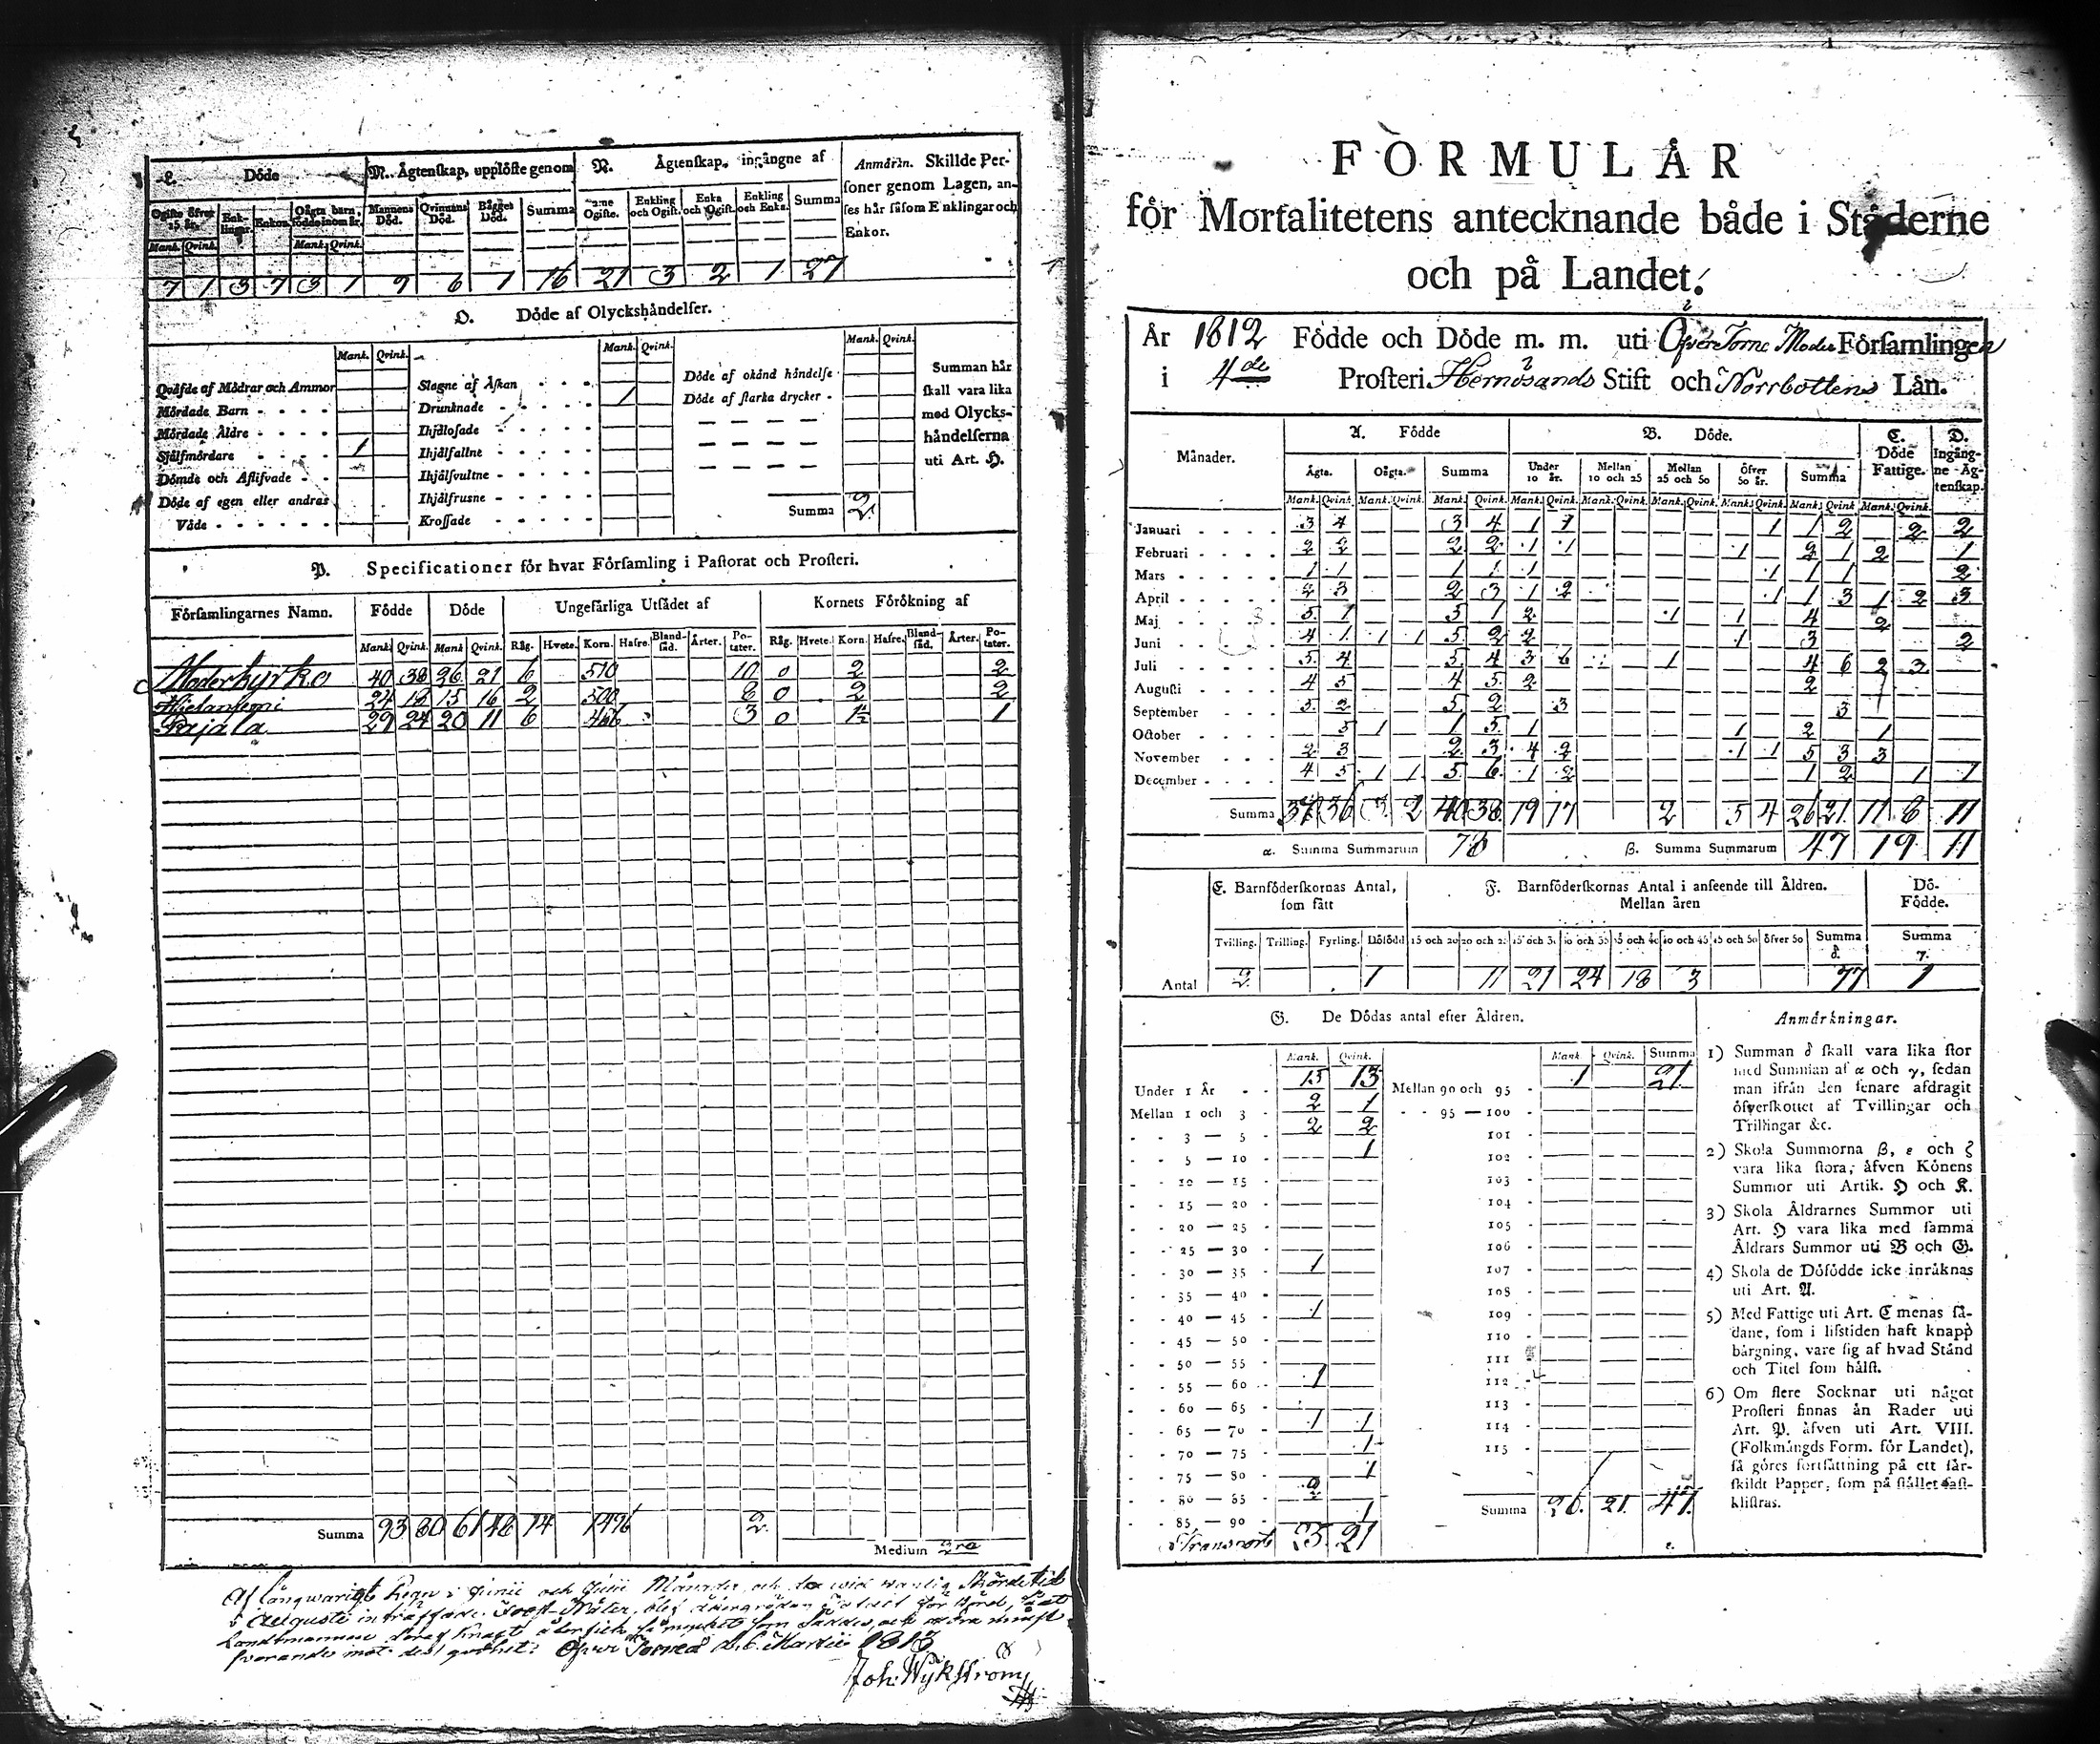 L. Döde
M. Ågtenſkap, upplöſte genom
N. Ågtenſkap, ingångne af
Anmärkn. Skillde Per-
ſoner genom Lagen, an-
ſes här ſåſom Enklingar och
Enkor.
Ogifte öfver 15 år. Enk-lingar. Enkor. Oägta barn, födde inom år. Mannens Död. Qvinnans Död. Bägges Död. Summa Ogifte. Enkling och Ogift. Enka och Ogift. Enkling och Enka. Summa
Mank. Qvink. Mank. Qvink.
7 1 3 7 3 1 9 6 1 16 21 3 2 1 27
O. Döde af Olyckshändelſer.
Mank. Qvink. Mank. Qvink. Mank. Qvink.
Qväfde af Mödrar och Ammor
Mördade Barn
Mördade Äldre
Sjålfmördare 1
Dömde och Aflifvade
Döde af egen eller andras
Våde
Slagne af Åſkan
Drunknade 1
Ihjälfallne
Ihjälfrusne
Kroſſade
Döde af okänd händelſe
Döde af ſtarka drycker
Summa 2
Summan här
ſkall vara lika
med Olycks-
händelſerna
uti Art. H.
P. Specificationer för hvar Förſamling i Paſtorat och Proſteri.
Förſamlingarnes Namn. Födde Döde Ungefärliga Utſädet af Kornets Förökning af
Mank. Qvink. Mank. Qvink. Råg. Hvete. Korn. Hafre. Bland-ſäd. Ärter. Po-tater. Råg. Hvete. Korn. Hafre. Bland-ſäd. Ärter. Po-tater.
Moderkyrko 40 38 26 21 6 510 10 0 2 2
Hietaniemi 24 18 15 16 2 500 8 0 2 2
Pajala 29 24 20 11 6 3 0 1½ 1
Summa 93 80 61 48 14 2
Medium 2ra
Af långwarigt Regn i Junii och Julii Månader, och
i Augusti inträffade Frost-Nätter, blef
Öfver Torneå d. 6 Martii 1813
Joh. Wykström
FORMULÅR
för Mortalitetens antecknande både i Ståderne
och på Landet.
År 1812 Födde och Döde m. m. uti Öfver Torne Moder Förſamlingen
i 4de Proſteri Hernösands Stift och Norrbottens Län.
Månader. A. Födde B. Döde. C. Döde Fattige. D. Ingång-ne Äg-tenſkap.
Ägta. Oägta. Summa Under 10 år. Mellan 10 och 25 Mellan 25 och 50 Öfver 50 år. Summa
Mank. Qvink. Mank. Qvink. Mank. Qvink. Mank. Qvink. Mank. Qvink. Mank. Qvink. Mank. Qvink. Mank. Qvink. Mank. Qvink.
Januari 3 4 3 4 1 1 1 1 2 2 2
Februari 2 2 2 2 1 1 1 2 1 2 1
Mars 1 1 1 1 1 1 1 1 2
April 2 3 2 3 1 2 1 1 3 1 2 3
Maj 5 1 5 1 2 1 1 4 2
Juni 4 1 1 1 5 2 2 1 3 2
Juli 5 4 5 4 3 6 1 4 6 2 3
Auguſti 4 5 4 5 2 2 1
September 5 2 5 2 3 3
October 5 1 1 5 1 1 2 1
November 2 3 2 3 4 2 1 1 5 3 3
December 4 5 1 1 5 6 1 2 1 2 1 1
Summa 37 36 3 2 40 38 19 17 2 5 4 26 21 11 8 11
α. Summa Summarum 78 β. Summa Summarum 47 19 11
E. Barnföderſkornas Antal, ſom fått
F. Barnföderſkornas Antal i anſeende till Åldren.
Mellan åren
Dö-
Födde.
Tvilling. Trilling. Fyrling. Döfödd 15 och 20 20 och 25 25 och 30 30 och 35 35 och 40 40 och 45 45 och 50 öfver 50 Summa δ. Summa γ.
Antal 2 1 11 21 24 18 3 77 1
G. De Dödas antal efter Åldren.
Mank. Qvink. Mank. Qvink. Summa
Under 1 År 15 13 Mellan 90 och 95 1
Mellan 1 och 3 2 1 95 — 100
3 — 5 2 2 101
5 — 10 1 102
10 — 15 103
15 — 20 104
20 — 25 105
25 — 30 106
30 — 35 1 107
35 — 40 108
40 — 45 1 109
45 — 50 110
50 — 55 111
55 — 60 1 112
60 — 65 113
65 — 70 1 1 114
70 — 75 1 115
75 — 80 1
80 — 85 2
85 — 90 1
Transport 25 21 Summa 26. 21. 47.
Anmärkningar.
1) Summan δ ſkall vara lika ſtor
med Summan af α och γ, ſedan
man ifrån den ſenare afdragit
öfverſkottet af Tvillingar och
Trillingar &c.
2) Skola Summorna β, ε och ζ
vara lika ſtora, äfven Könens
Summor uti Artik. H och K.
3) Skola Åldrarnes Summor uti
Art. H vara lika med ſamma
Åldrars Summor uti B och G.
4) Skola de Döfödde icke inräknas
uti Art. A.
5) Med Fattige uti Art. C menas ſå-
dane, ſom i lifstiden haft knapp
bärgning, vare ſig af hvad Stånd
och Titel ſom hälſt.
6) Om flere Socknar uti något
Proſteri finnas än Rader uti
Art. P. äfven uti Art. VIII.
(Folkmängds Form. för Landet),
ſå göres fortſättning på ett ſär-
ſkildt Papper, ſom på ſtället faſt-
kliſtras.